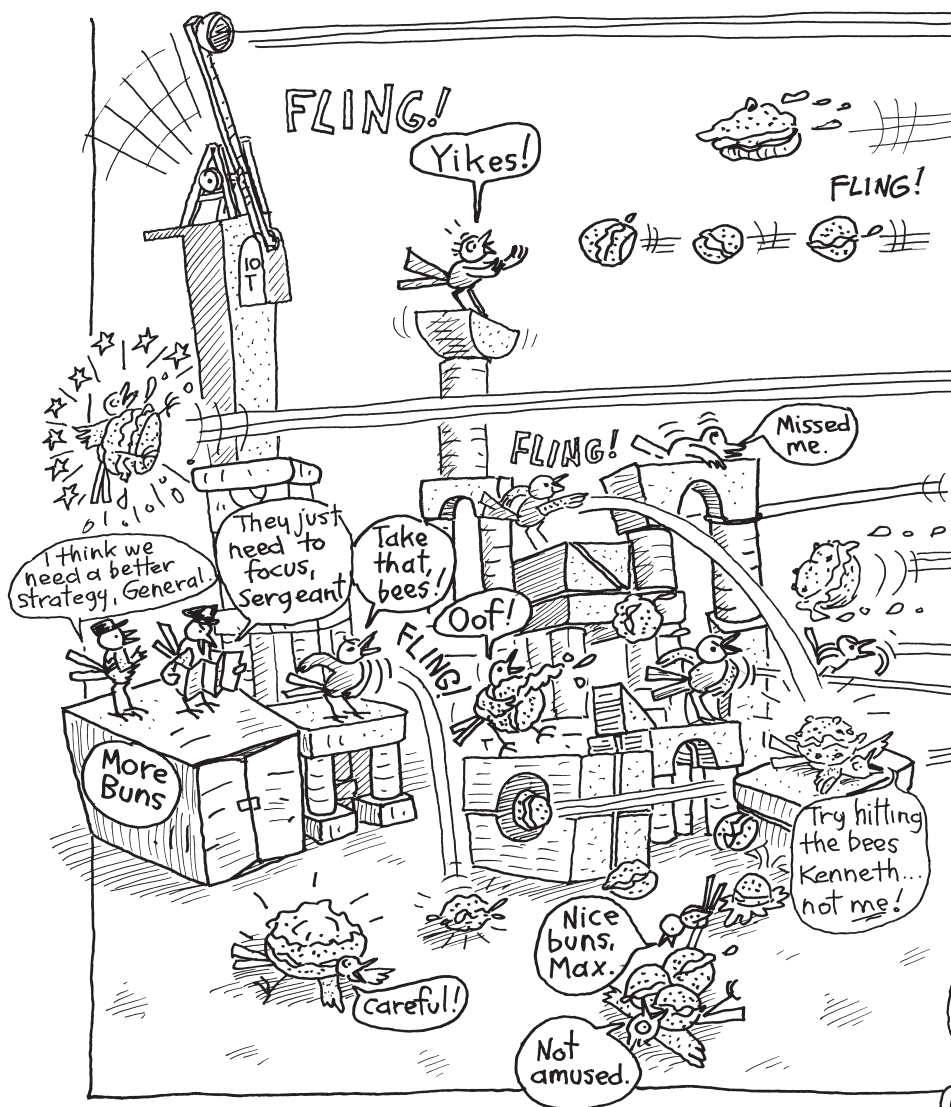 FLING!
Yikes!
FLING!
10
T
Missed
me.
FLING!
I think we
need a better
strategy, General.
They just
need to
focus,
Sergeant
Take
that,
bees!
Oof!
FLING!
More
Buns
Try hitting
the bees
Kenneth...
not me!
Nice
buns,
Max.
careful!
Not
amused.